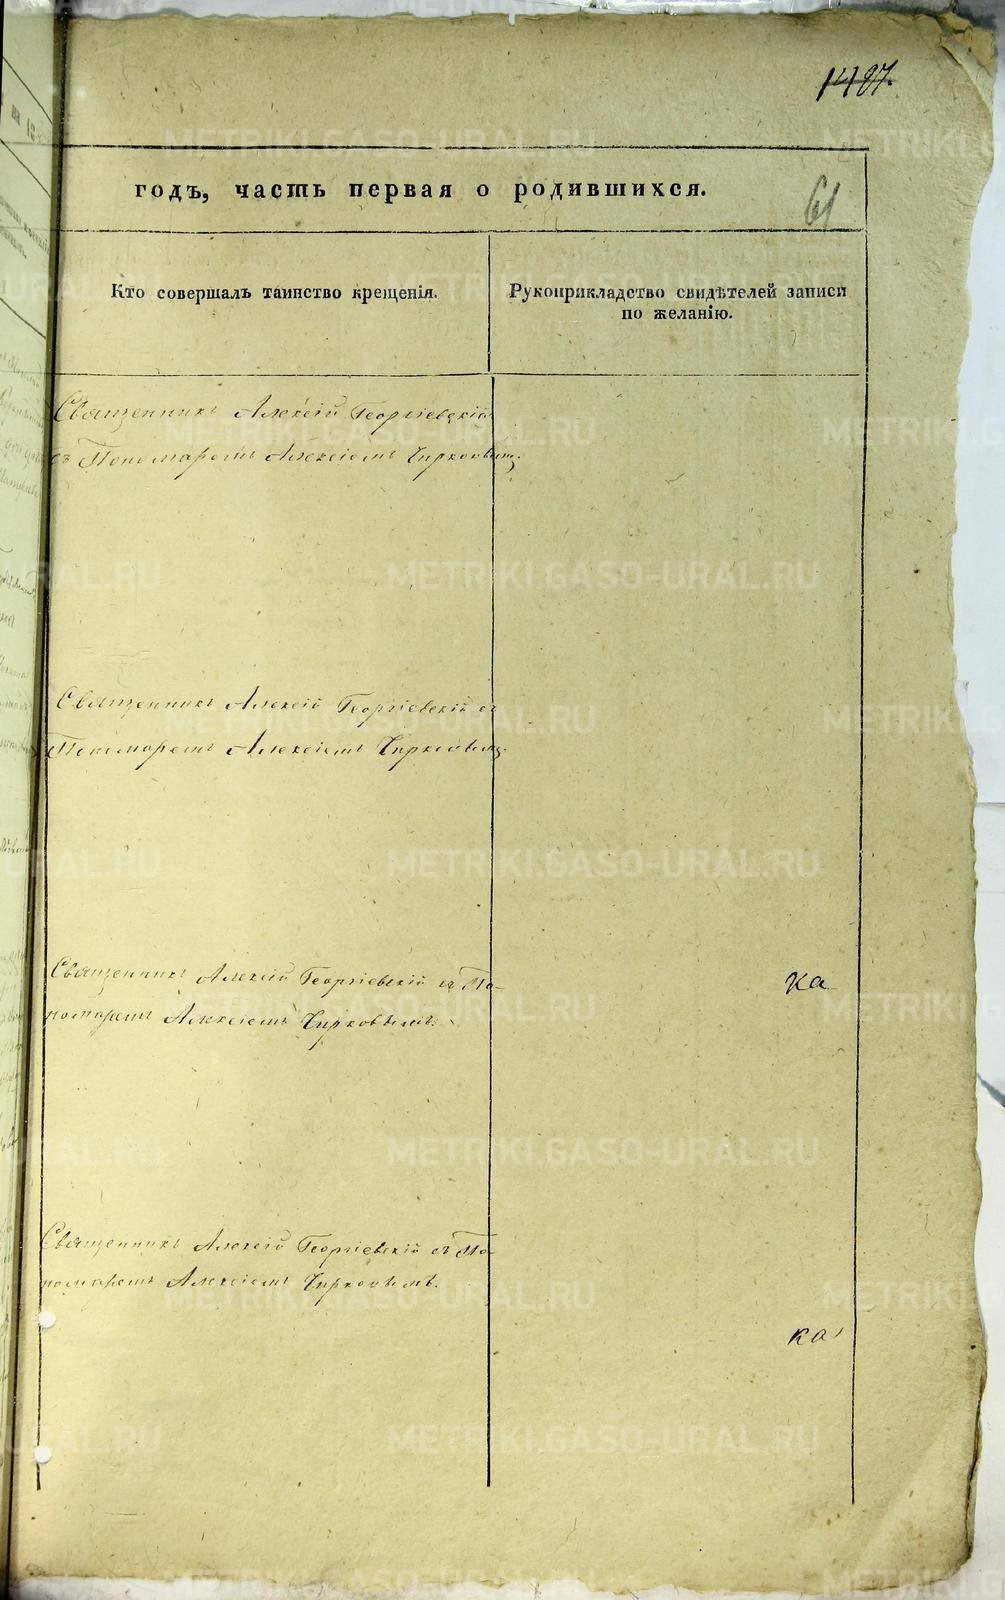 1487.
годъ, часть первая о родившихся.
61
Кто совершалъ таинство крещенія.
Рукоприкладство свидѣтелей записи
по желанію.
Священникъ Алексій Георгіевскій
съ Пономаремъ Алексіемъ Чирковымъ.
Священникъ Алексій Георгіевскій съ
Пономаремъ Алексіемъ Чирковымъ.
Священникъ Алексій Георгіевскій съ По-
номаремъ Алексіемъ Чирковымъ.
ка
Священникъ Алексій Георгіевскій съ По-
номаремъ Алексіемъ Чирковымъ.
ка
METRIKI.GASO-URAL.RU